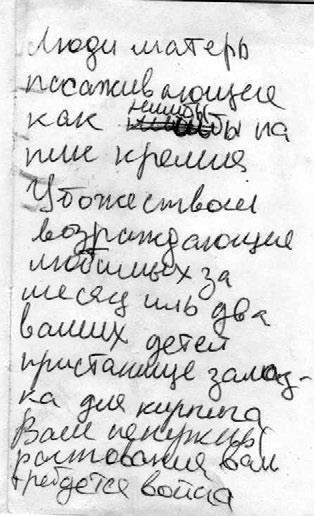 Люди матерь
посаживающие
как нимбы на
пик кремля
Убожеством
возраждающие
любимых за
месяц иль два
ваших детей
пристанище замаз-
ка для кирпича
Вам ненужны
рантования вам
грейдется война